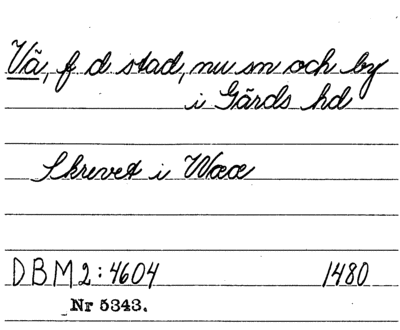 Vä, f d stad, nu sn och by
i Gärds hd
Skrevet i Wææ
DBM 2:4604 1480
Nr 5343.